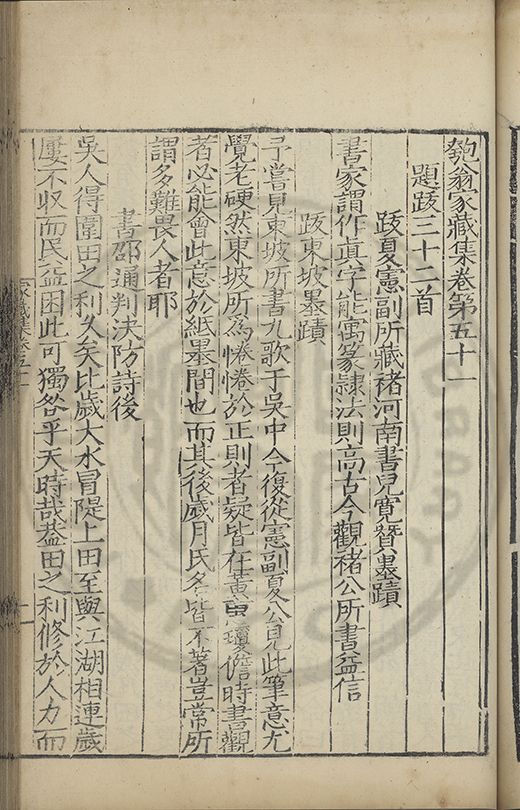 匏翁家藏集卷第五十一
題跋三十二首
跋夏憲副所藏褚河南書兒寬贊墨蹟
書家謂作真字能寓篆隷法則高古今觀褚公所書益信
跋東坡墨蹟
予嘗見東坡所書九歌于吳中今復從憲副夏公見此筆意尤
覺老硬然東坡所為惓惓於正則者疑皆在黄州瓊儋時書觀
者必能會此意於紙墨間也而其後歲月氏名皆不著豈常所
謂多難畏人者耶
書邵通判決防詩後
吳人得圍田之利久矣比歲大水冒隄上田至與江湖相連歲
屢不収而民益困此可獨咎乎天時哉蓋田之利修於人力而